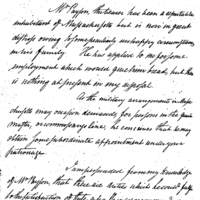 Mr Payson, the bearer has been a reputable
inhabitant of Massachusetts but is now in great
distress owing to some particularly unhappy circumstances
in his family. He has applied to me for some
employment which would give him bread, but there
is nothing at present in my disposal
As the military arrangements in Massa
chusetts may occasion demands for persons in the pay
master, or commissary lines, he conceives that he may
obtain some subordinate appointment under your
patronage.
I am persuaded from my knowledge
of Mr Payson, that there are duties which he could
to the satisfaction of